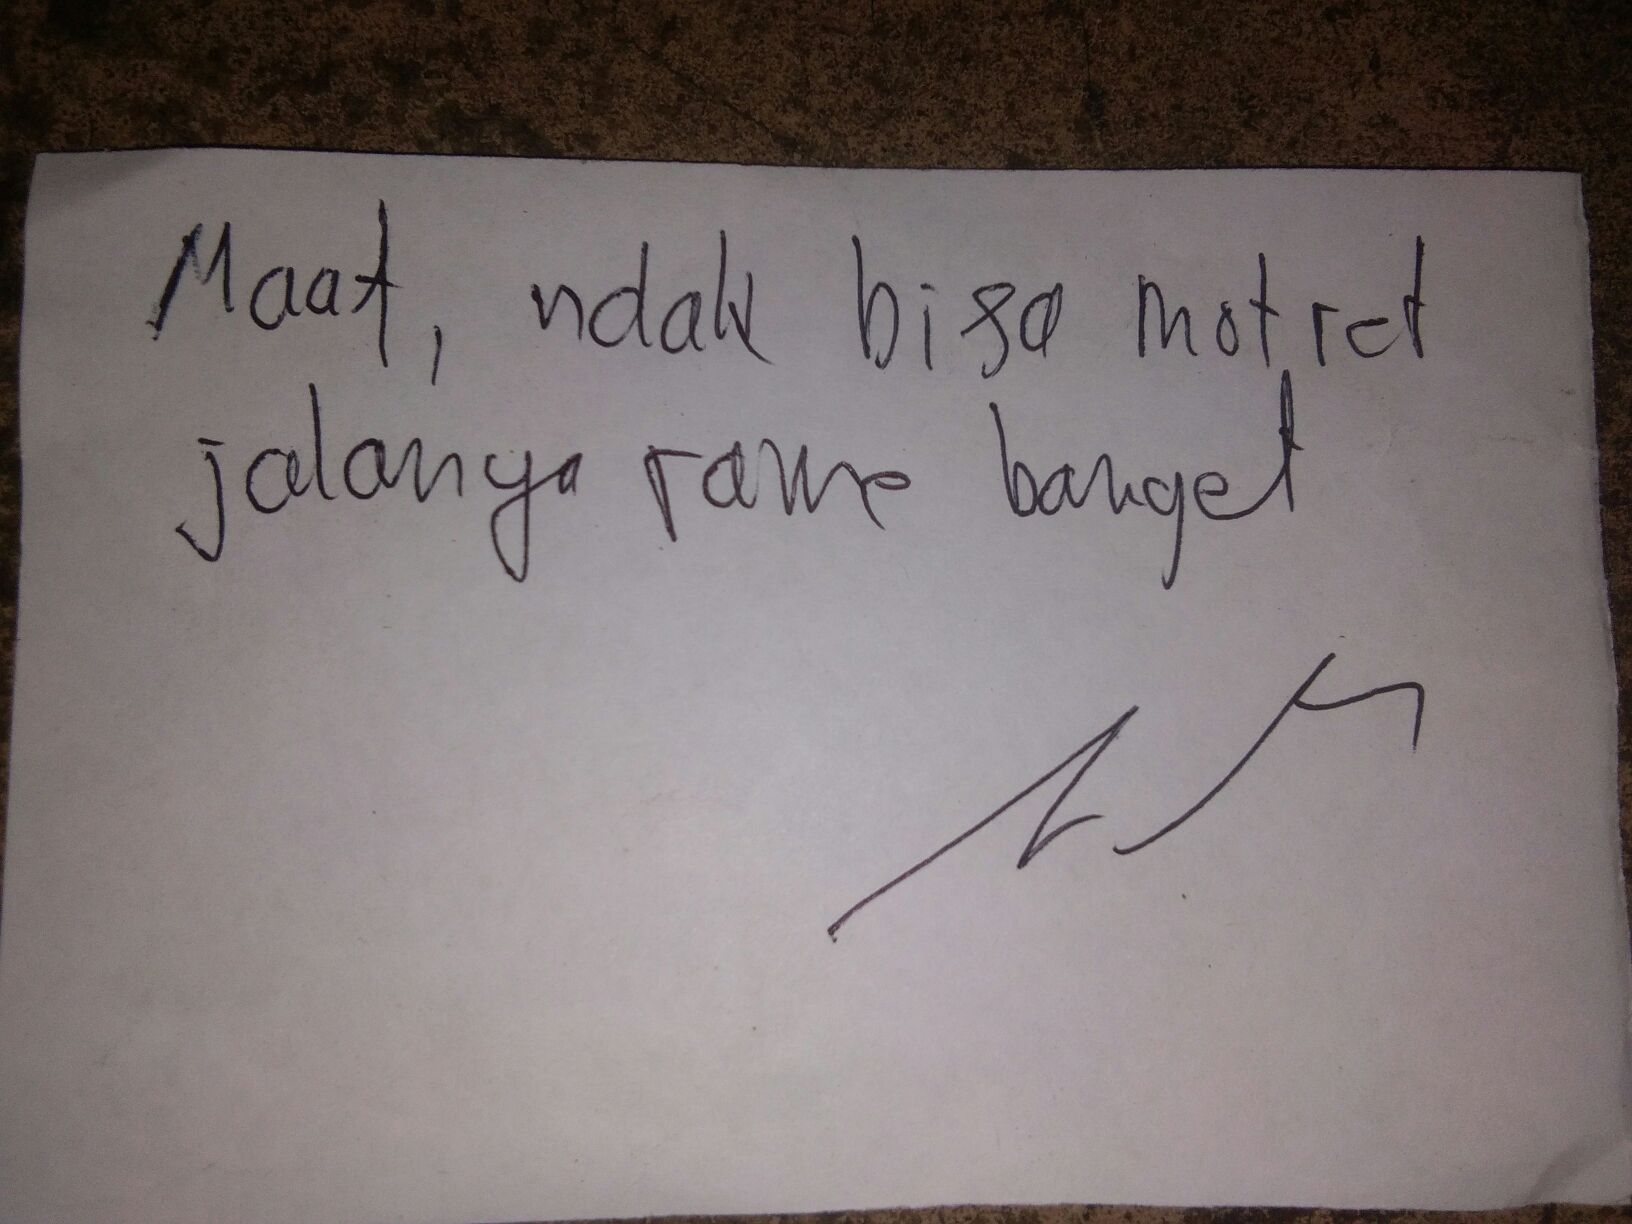 Maaf, ndak bisa motret
jalanya rame banget